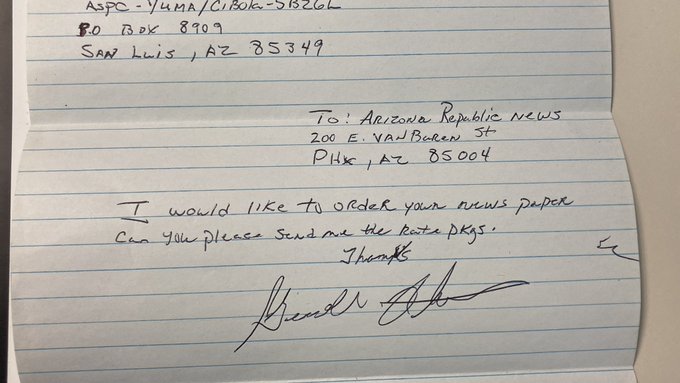 ASPC-YUMA/CIBOLA-SB26L
P.O BOX 8909
SAN LUIS, AZ 85349
TO: ARIZONA Republic NEWS
200 E. VAN BUREN St
PHX, AZ 85004
I would like to order your news paper
Can you please send me the Rate pkgs.
Thanks